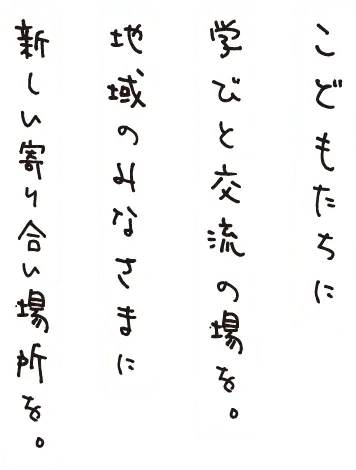 こどもたちに
学びと交流の場を。
地域のみなさまに
新しい寄り合い場所を。